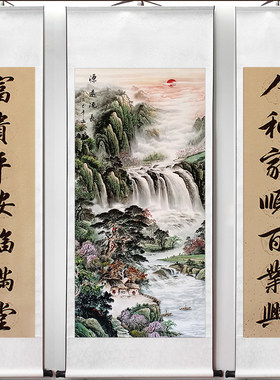 人和家順百業興
源遠流長
富貴平安福滿堂